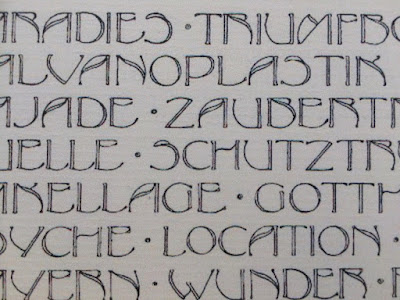 ARADIES · TRIUMFBO
ALVANOPLASTIK
AJADE · ZAUBERTR
UELLE · SCHUTZTRU
AKELLAGE · GOTTH
SYCHE · LOCATION ·
AYERN · WUNDER ·